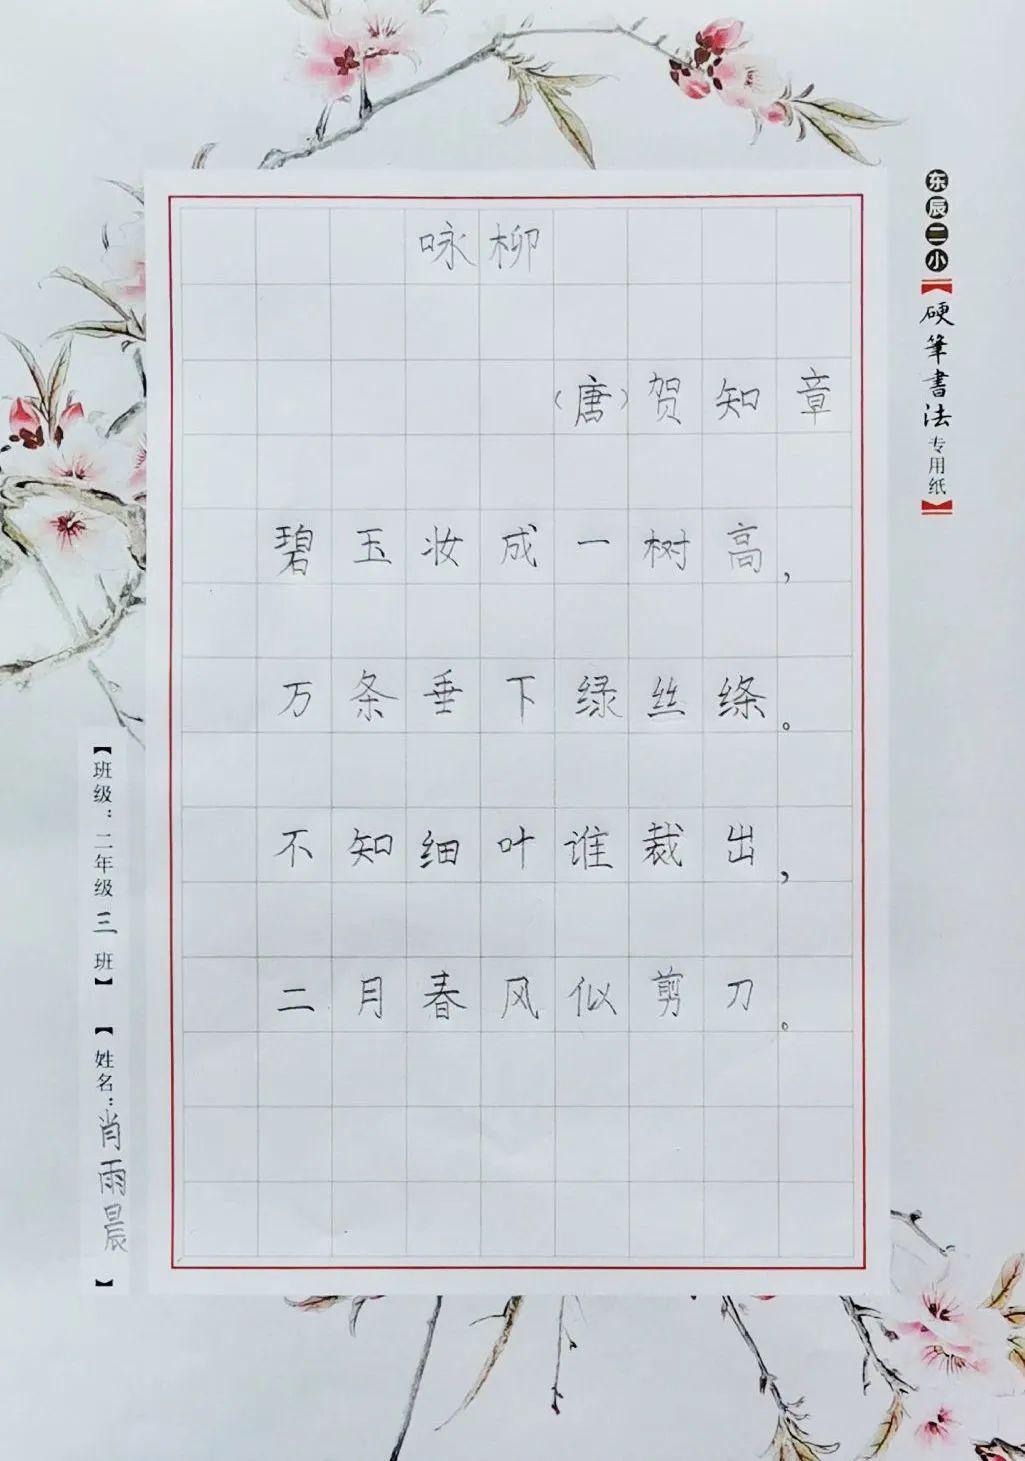 咏柳
（唐）贺知章
碧玉妆成一树高，
万条垂下绿丝绦。
不知细叶谁裁出，
二月春风似剪刀。
东辰二小【硬筆書法专用纸】
【班级：二年级三班】【姓名：肖雨晨】